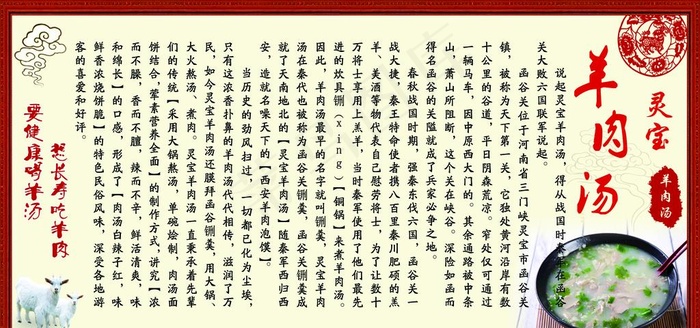 灵宝
羊肉汤
羊肉汤
说起灵宝羊肉汤，得从战国时秦军在函谷
关大败六国联军说起。
函谷关位于河南省三门峡灵宝市函谷关
镇，被称为天下第一关，它独处黄河沿岸有数
十公里的谷道，平日阴森荒凉。窄处仅可通过
一辆马车，因中原西大门的。其余通路被中条
山，萧山所阻断，这个关在峡谷。深险如函而
得名函谷的关隘就成了兵家必争之地。
春秋战国时期，强秦东伐六国，函谷关一
战大捷，秦王特命使者携八百里秦川肥硕的羔
羊、美酒等物代表自己慰劳将士，为了让数十
万将士享用上羔羊，当时秦军使用了他们最先
进的炊具铏【xing】【铜锅】来煮羊肉汤。
因此，羊肉汤最早的名字就叫铏羹，灵宝羊肉
汤在秦代也被称为函谷关铏羹，函谷关铏羹成
就了天南地北的【灵宝羊肉汤】随秦军西归西
安，造就名噪天下的【西安羊肉泡馍】。
当历史的劲风扫过，一切都已化为尘埃，
只有这浓香扑鼻的羊肉汤代代相传，滋润了万
民，如今灵宝羊肉汤还膜拜函谷铏羹，用大锅、
大火熬汤、煮肉。灵宝羊肉汤一直秉承着先辈
们的传统【采用大锅熬汤，单碗烩制，肉汤面
饼结合，荤素营养全面】的制作方式，讲究【浓
而不朦，香而不膻，辣而不辛，鲜活清爽，味
和绵长】的口感，形成了【肉汤白辣子红，味
鲜香浓烧饼脆】的特色民俗风味，深受各地游
客的喜爱和好评。
想长寿吃羊肉
要健康喝羊汤